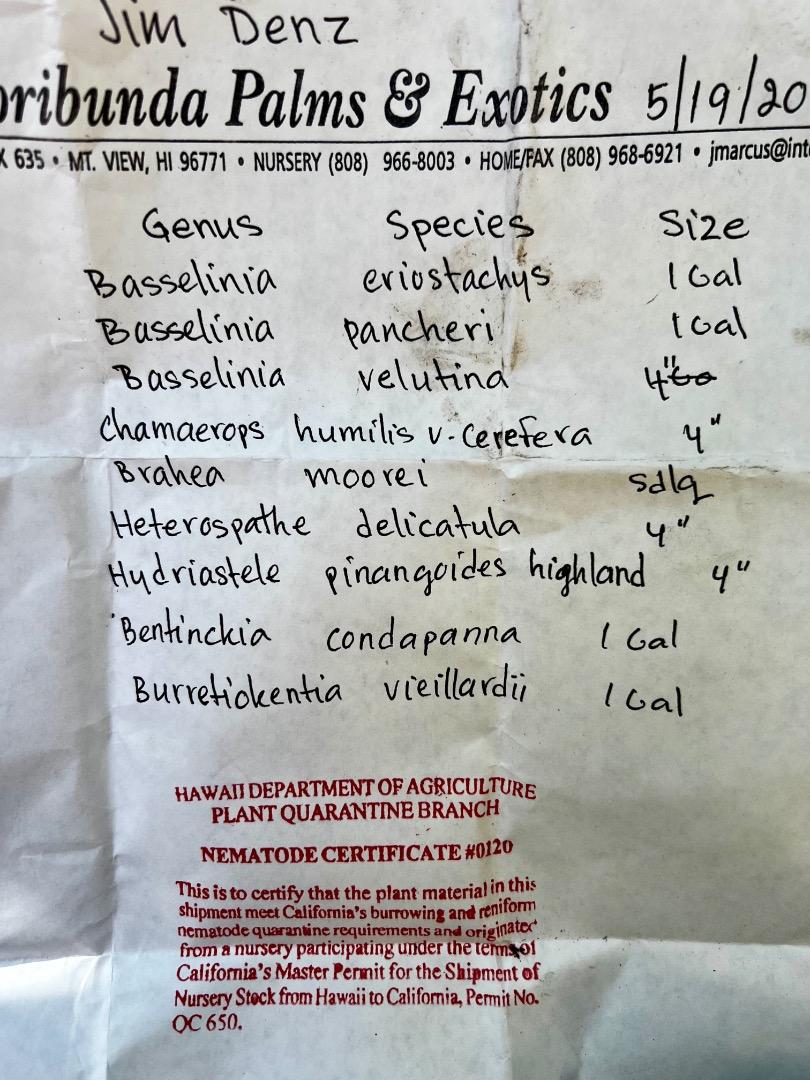 Jim Denz
oribunda Palms & Exotics 5/19/20
X 635 • MT. VIEW, HI 96771 • NURSERY (808) 966-8003 • HOME/FAX (808) 968-6921 • jmarcus@int
Genus Species Size
Basselinia eriostachys 1 Gal
Basselinia pancheri 1 Gal
Basselinia velutina 4"
Chamaerops humilis v. cerefera 4"
Brahea moorei sdlg
Heterospathe delicatula 4"
Hydriastele pinangoides highland 4"
Bentinckia condapanna 1 Gal
Burretiokentia vieillardii 1 Gal
HAWAII DEPARTMENT OF AGRICULTURE
PLANT QUARANTINE BRANCH
NEMATODE CERTIFICATE #0120
This is to certify that the plant material in this
shipment meet California's burrowing and reniform
nematode quarantine requirements and originated
from a nursery participating under the terms of
California's Master Permit for the Shipment of
Nursery Stock from Hawaii to California, Permit No.
QC 650.